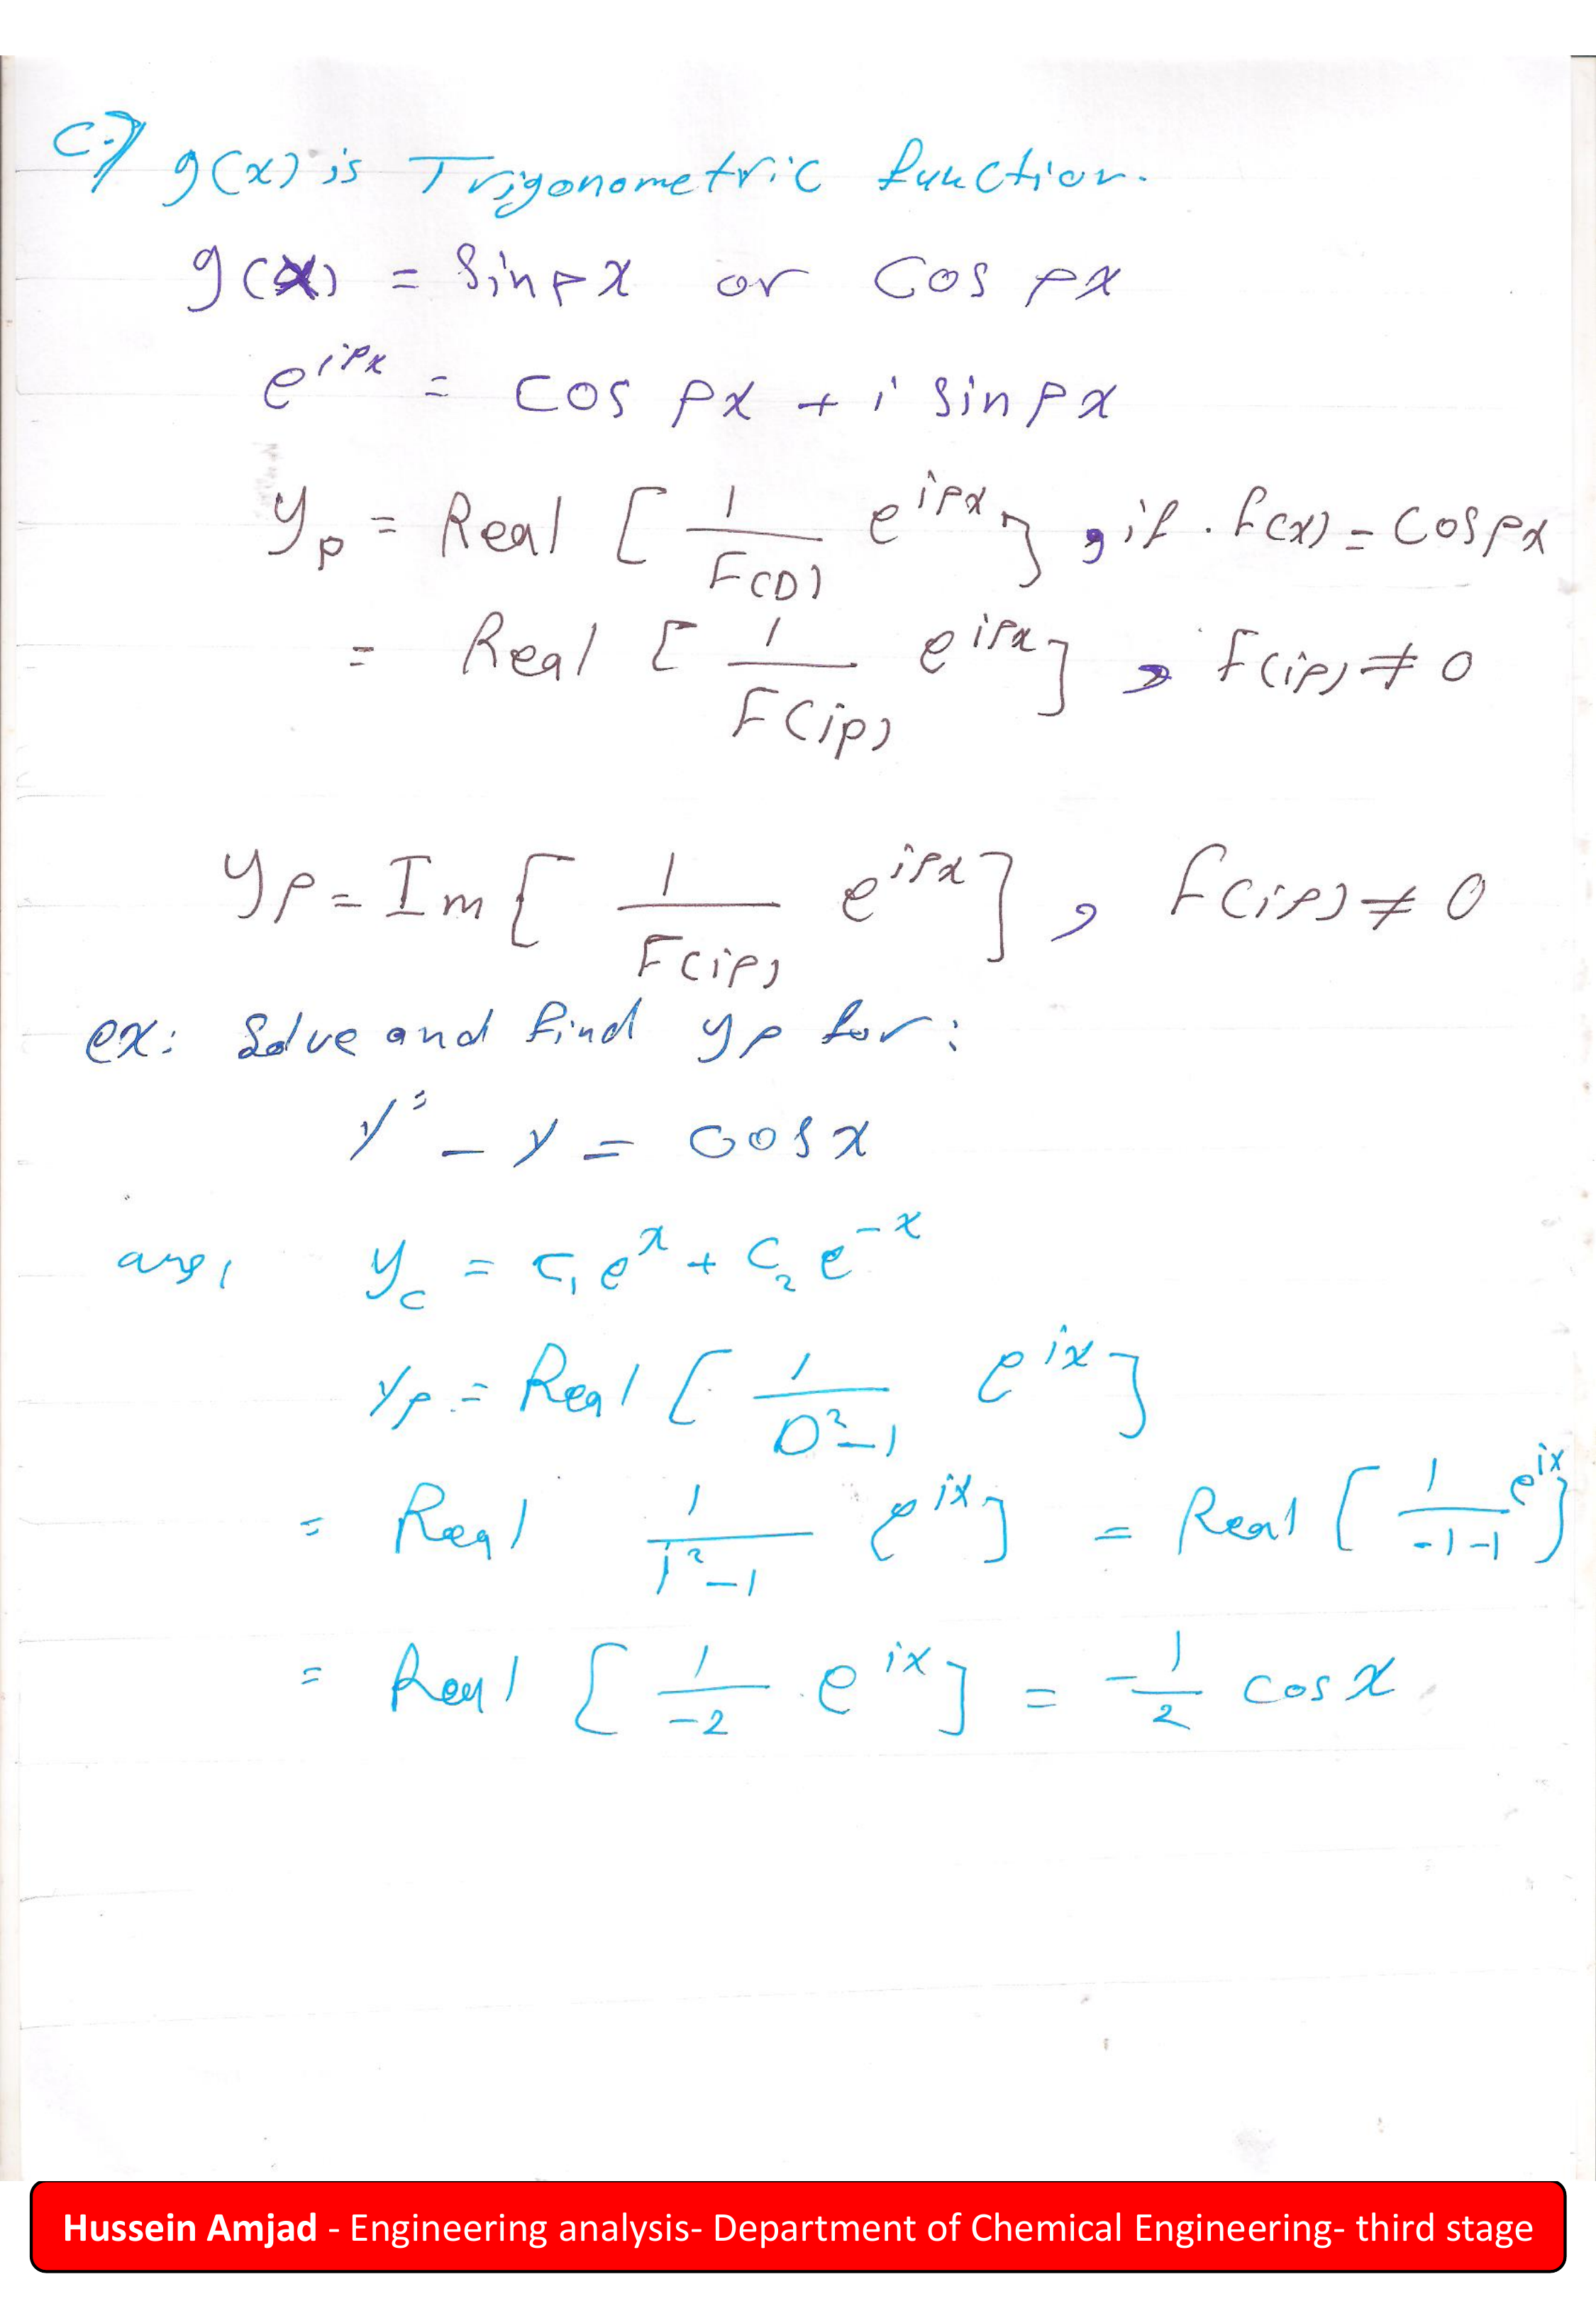 C-) g(x) is Trigonometric function.
g(x) = sin px or cos px
e^{ipx} = cos px + i sin px
y_p = Real [ 1/F(D) e^{ipx} ] , if . f(x) = cos px
= Real [ 1/F(ip) e^{ipx} ] , F(ip) ≠ 0
y_p = Im [ 1/F(ip) e^{ipx} ] , F(ip) ≠ 0
ex: Solve and find y_p for:
y'' - y = cos x
ans, y_c = c_1 e^x + c_2 e^{-x}
y_p = Real [ 1/(D^2-1) e^{ix} ]
= Real 1/(i^2-1) e^{ix} ] = Real [ 1/(-1-1) e^{ix} ]
= Real [ 1/-2 e^{ix} ] = -1/2 cos x
Hussein Amjad - Engineering analysis- Department of Chemical Engineering- third stage